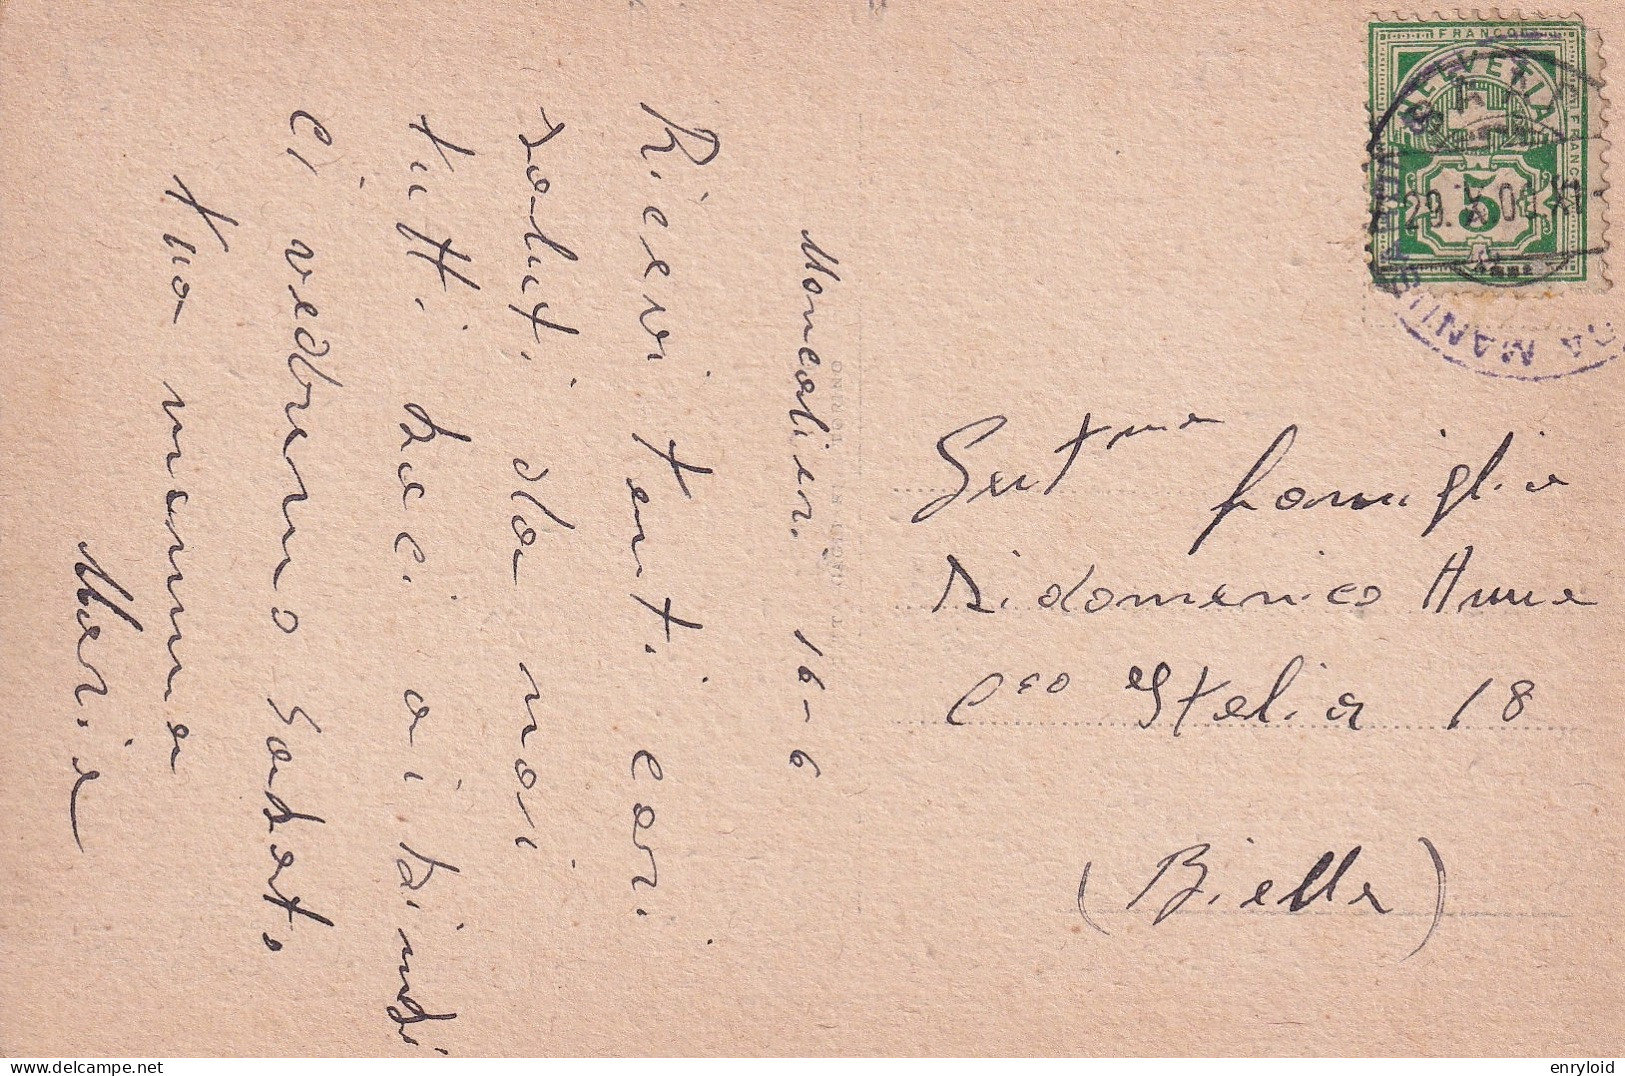 Moncalieri 16-6
Ricevi tanti cari
saluti da noi
tutti baci ai bimbi
ci vedremo sabato
tua mamma
Maria
Gent.ma famiglia
Didomenico Anna
C.so Italia 18
(Biella)
FRANCO
FRANCO
HELVETIA
5
29.
XI
MANU
TORINO
delcampe.net
enryloid